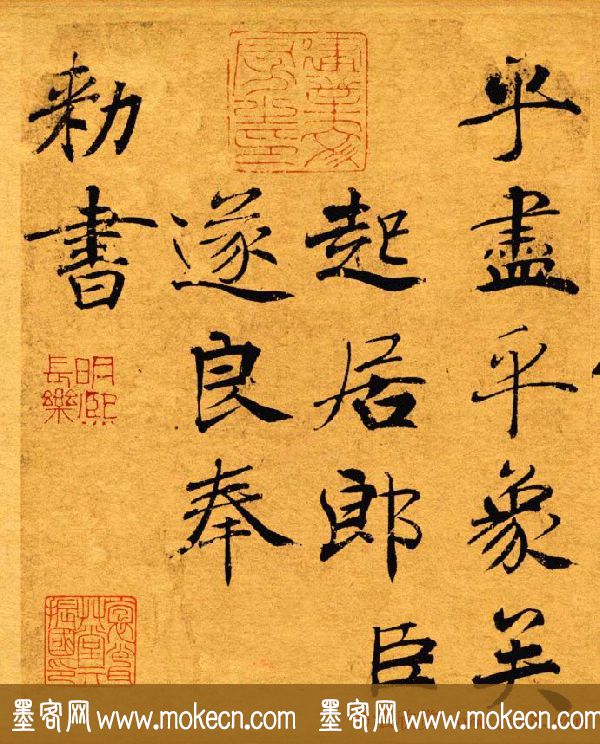 乎盡乎象矣
起居郎臣
遂良奉
勑書
建業文房之印
墨客网 www.mokecn.com 墨客网 www.mokecn.com